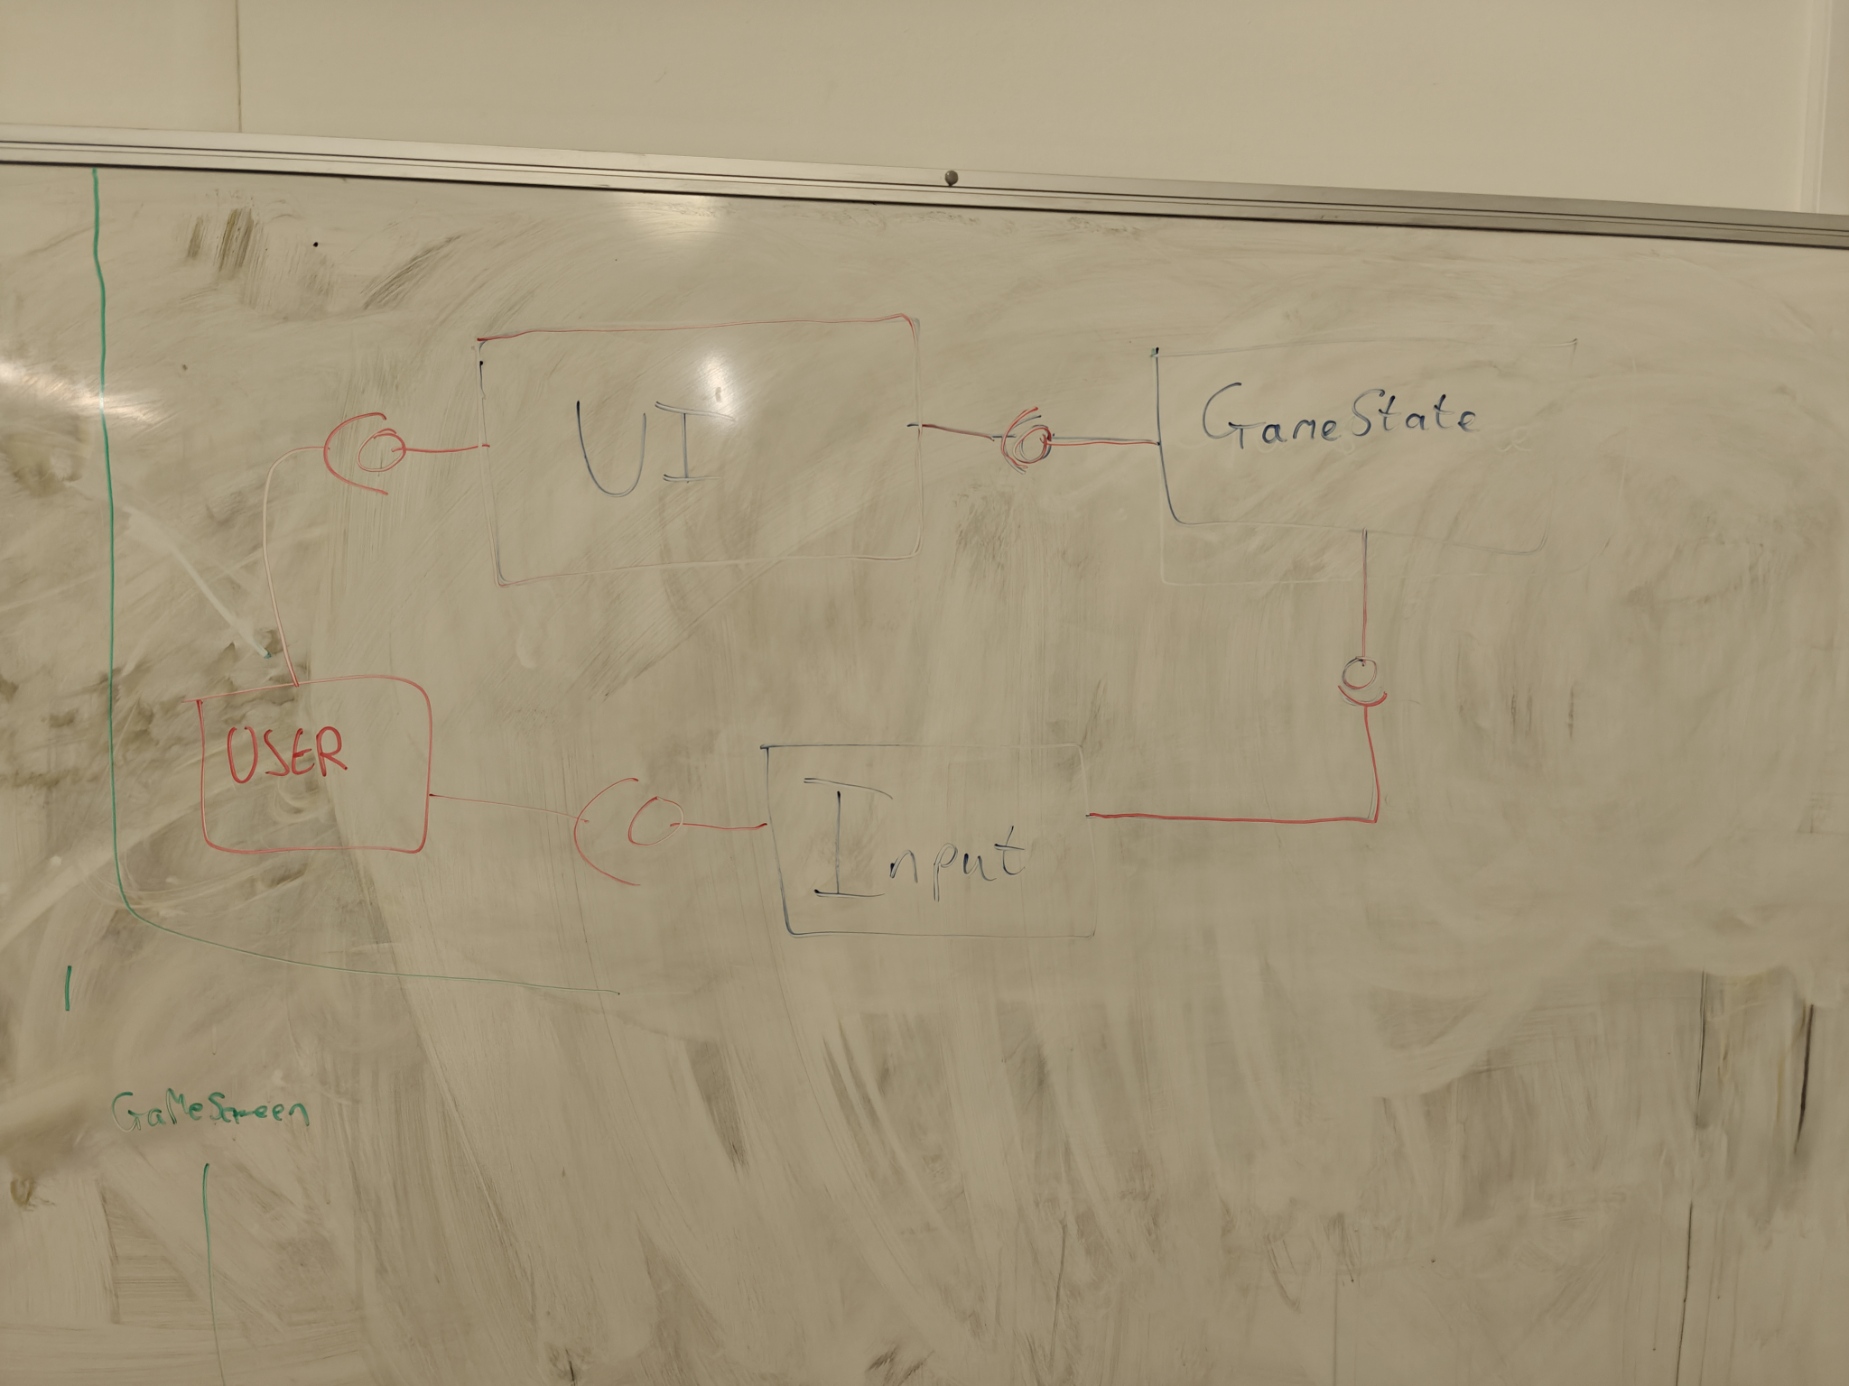 UI
GameState
USER
Input
GaMeScreen